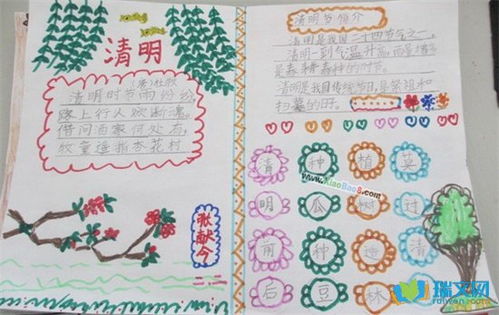 清明
(唐)杜牧
清明时节雨纷纷
路上行人欲断魂。
借问酒家何处有,
牧童遥指杏花村
张献今
清明节简介
清明是我国二十四节气之一。
清明一到气温升高,而是
是春耕春种的时节。
清明是我国传统节日,是祭祖和
扫墓的日。
清 种 植 莫
www.XiaoBao8.com
明 瓜 树 过
前 种 造 清
后 豆 林
瑞文网
ruiwen.com